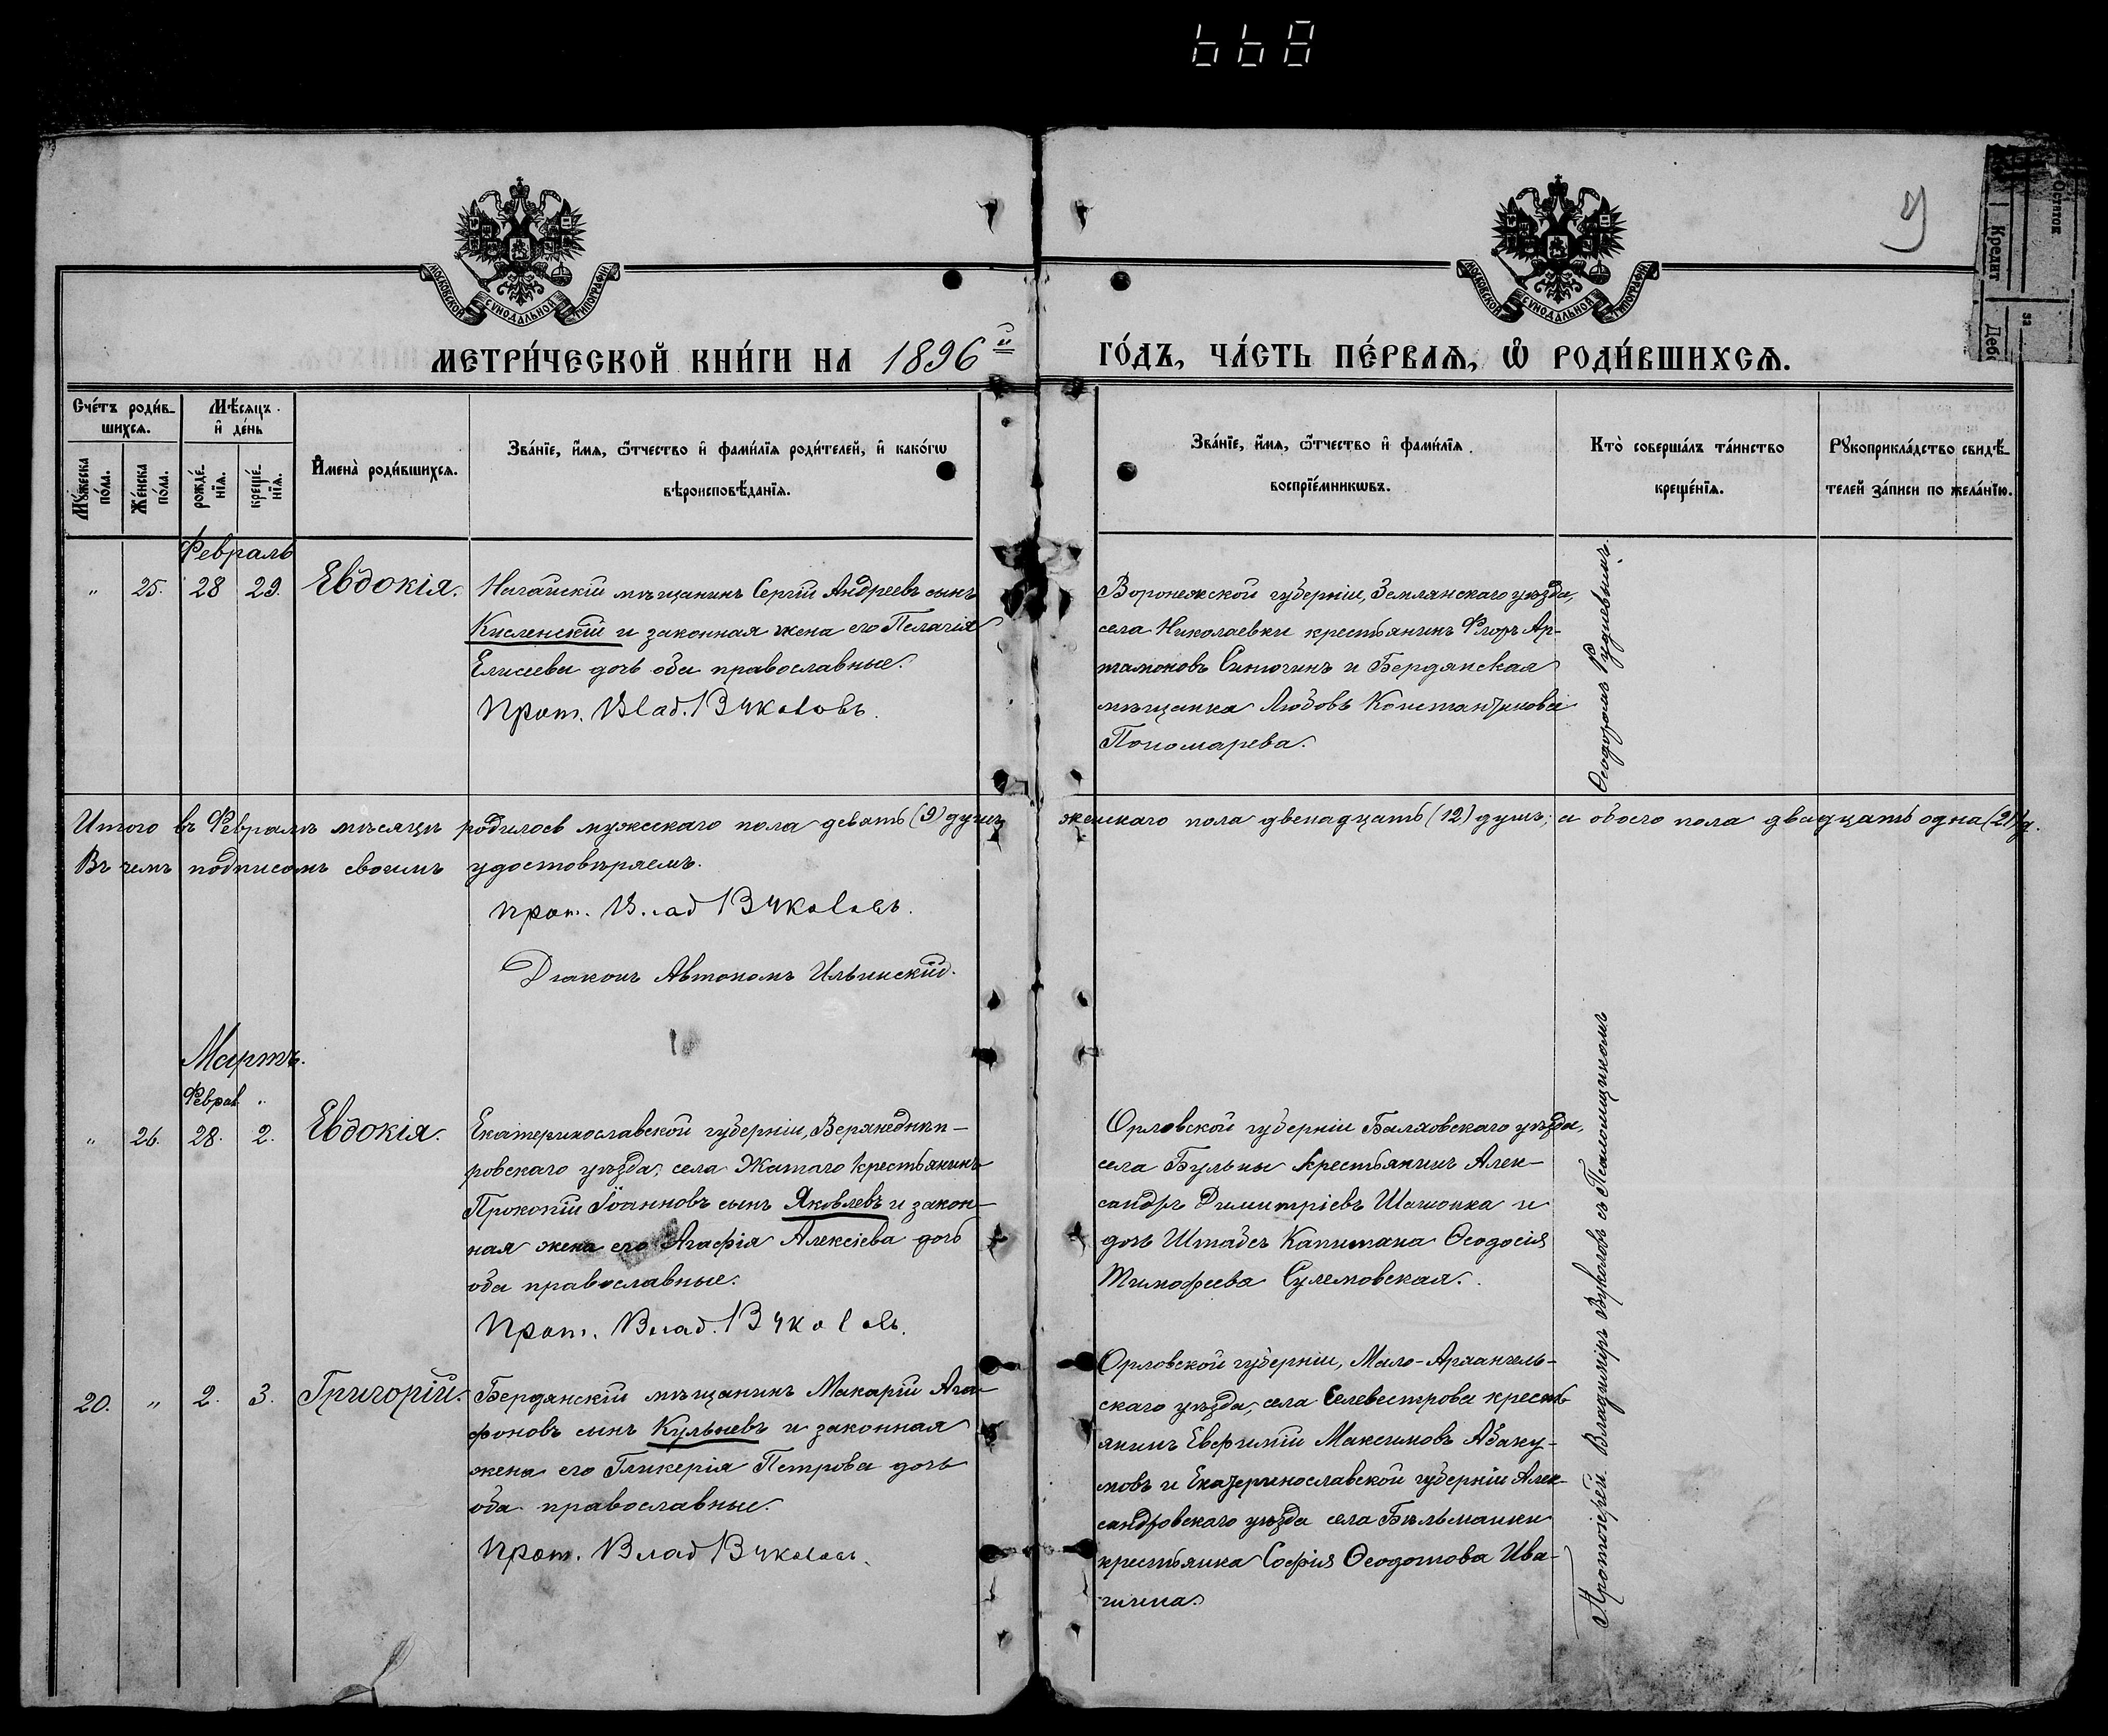 668
9
Остаток
Кредит
МОСКОВСКОЙ СѴНОДАЛЬНОЙ ТИПОГРАФІИ
МОСКОВСКОЙ СѴНОДАЛЬНОЙ ТИПОГРАФІИ
МЕТРИ́ЧЕСКОЙ КНИ́ГИ НА 1896й
ГО́ДЪ, ЧА́СТЬ ПЕ́РВАѦ, Ѿ РОДИ́ВШИХСѦ.
Сче́тъ роди́в-
шихсѧ.
Мѣ́сѧцъ
и҆ де́нь
Мꙋ́жеска по́ла.
Же́нска по́ла.
рожде́-
нїѧ.
креще́-
нїѧ.
И҆мена̀ роди́вшихсѧ.
Зва́нїе, и҆́мѧ, ѻ҆́тчество и҆ фами́лїѧ роди́телей, и҆ како́гѡ
вѣроисповѣ́данїѧ.
Зва́нїе, и҆́мѧ, ѻ҆́тчество и҆ фами́лїѧ
воспрїе́мникѡвъ.
Кто̀ соверша́лъ та́инство
креще́нїѧ.
Рꙋкоприкла́дство свидѣ́-
телей за́писи по жела́нїю.
Февраль
" 25. 28 29. Евдокія.
Ногайскій мѣщанинъ Сергій Андреевъ сынъ
Кисленскій и законная жена его Пелагія
Елисеева дочь оба православные.
Прот. Влад. Вуколовъ.
Воронежской губерніи, Землянскаго уѣзда,
села Николаевки крестьянинъ Флоръ Ар-
тамоновъ Синюгинъ и Бердянская
мѣщанка Любовь Константинова
Пономарева.
Ѳеодоромъ Рудневымъ.
Итого въ Февралѣ мѣсяцѣ родилось мужескаго пола девять (9) душъ, женскаго пола двенадцать (12) душъ; а обоего пола двадцать одна (21) д.
Въ чемъ подписомъ своимъ удостовѣряемъ.
Прот. Влад Вуколовъ.
Діаконъ Автономъ Ильинскій.
Мартъ.
Феврал "
" 26. 28. 2. Евдокія.
Екатеринославской губерніи, Верхнеднѣп-
ровскаго уѣзда, села Жатаго крестьянинъ
Прокопій Іоанновъ сынъ Яковлевъ и закон-
ная жена его Агафія Алексіева дочь
оба православные.
Прот. Влад. Вуколовъ.
Орловской губерніи Балховскаго уѣзда,
села крестьянинъ Алек-
сандръ Димитріевъ и
дочь Штабсъ Капитана Ѳеодосія
Тимофеева Сулемовская.
20. " 2. 3. Григорій.
Бердянскій мѣщанинъ Макарій Ага-
фоновъ сынъ Кульневъ и законная
жена его Гликерія Петрова дочь
оба православные.
Прот. Влад Вуколовъ.
Орловской губерніи, Мало-Архангель-
скаго уѣзда, села Селевестрова кресть-
янинъ Евфимій Максимовъ Абаку-
мовъ и Екатеринославской губерніи Алек-
сандровскаго уѣзда села Бѣльманки
крестьянка Софія Ѳеодотова Ива-
Протоіерей Владиміръ Вуколовъ съ Псаломщикомъ